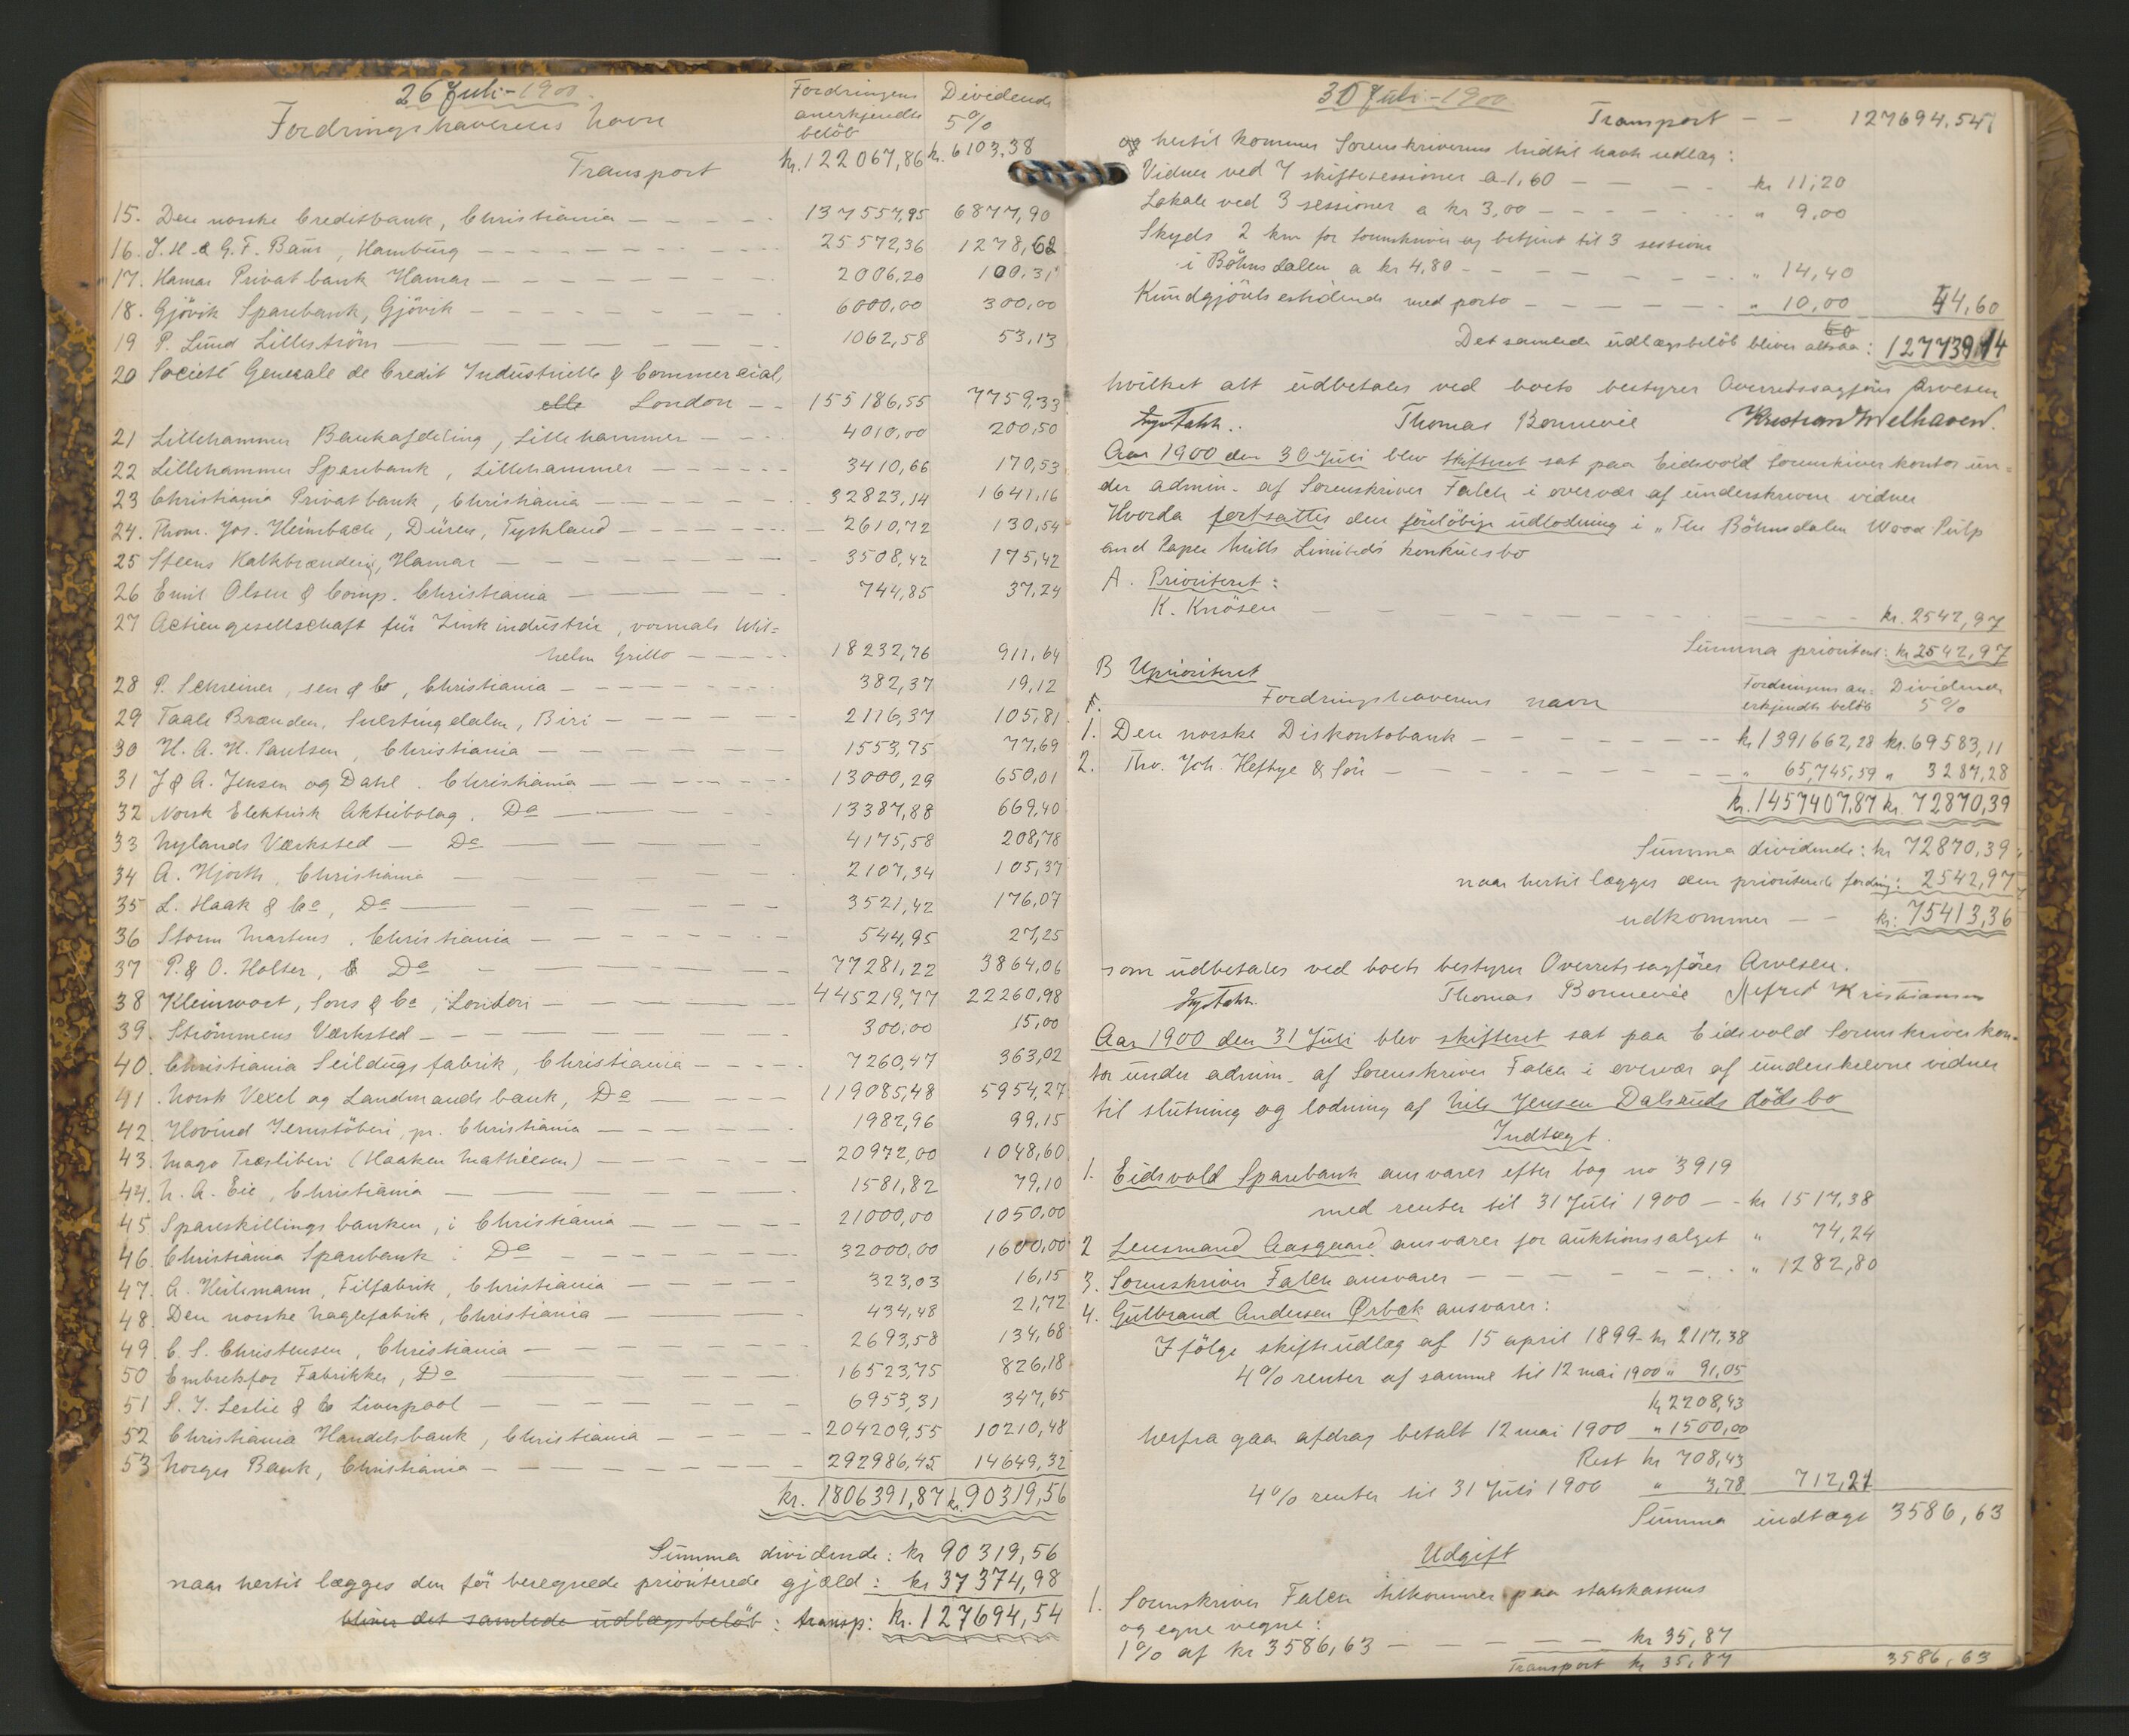 26 Juli - 1900.
Fordringshaverens Navn
Fordringens anerkjendte beløb
Dividende 5%
Transport kr. 122067,86 kr. 6103,38
15. Den norske Creditbank, Christiania — 137557,95 6877,90
16. J. H. & G. F. Baur, Hamburg — 25572,36 1278,62
17. Hamar Privatbank Hamar — 2006,20 100,31
18. Gjövik Sparebank, Gjövik — 6000,00 300,00
19 P. Lund Lilleström — 1062,58 53,13
20 Societé Generale de Credit Industrielle & Commercial,
elle London — 155186,55 7759,33
21 Lillehammer Bankafdeling, Lillehammer — 4010,00 200,50
22 Lillehammer Sparebank, Lillehammer — 3410,66 170,53
23 Christiania Privatbank, Christiania — 32823,14 1641,16
24. Thom. Jos. Heimbach, Düren, Tyskland — 2610,72 130,54
25 Steens Kalkbrænderi, Hamar — 3508,42 175,42
26 Emil Olsen & Comp. Christiania — 744,85 37,24
27 Actiengesellschaft für Zinkindustrie, vormals Wil=
helm Grillo — 18232,76 911,64
28 P. Schreiner, sen & Co, Christiania — 382,37 19,12
29 Taale Brænden, Snertingdalen, Biri — 2116,37 105,81
30 H. A. H. Paulsen, Christiania — 1553,75 77,69
31 J & A. Jensen og Dahl. Christiania — 13000,29 650,01
32 Norsk Elektrisk Aktiebolag. Do — 13387,88 669,40
33 Nylands Værksted — Do — 4175,58 208,78
34 A. Hjorth, Christiania — 2107,34 105,37
35 L. Haak & Co, Do — 3521,42 176,07
36 Storm Martens, Christiania — 544,95 27,25
37 P. & O. Holter, Do — 77281,22 3864,06
38 Kleinwort, Sons & Co, London — 445219,77 22260,98
39. Strömmens Værksted — 300,00 15,00
40. Christiania Seildugsfabrik, Christiania — 7260,47 363,02
41. Norsk Vexel og Landmandsbank, Do — 119085,48 5954,27
42. Hovind Jernstöberi, pr. Christiania — 1982,96 99,15
43. Mago Træsliberi (Haaken Mathiesen) — 20972,00 1048,60
44. N. A. Eie, Christiania — 1581,82 79,10
45. Spareskillingsbanken, i Christiania — 21000,00 1050,00
46. Christiania Sparebank. Do — 32000,00 1600,00
47. A. Heilemann, Filfabrik, Christiania — 323,03 16,15
48. Den norske Naglefabrik, Christiania — 434,48 21,72
49. C. S. Christensen, Christiania — 2693,58 134,68
50 Embretsfos Fabrikker, Do — 16523,75 826,18
51 S. J. Leslie & Co Liverpool — 6953,31 347,65
52 Christiania Handelsbank, Christiania — 204209,55 10210,48
53 Norges Bank, Christiania — 292986,45 14649,32
kr. 1806391,87 kr. 90319,56
Summa dividende: kr 90319,56
naar hertil lægges den för beregnede prioriterede gjæld: kr 37374,98
bliver det samlede udlægsbelöb: transp: kr. 127694,54
30 Juli - 1900
Transport — 127694,54
og hertil kommer Sorenskriverens hidtil havte udlæg:
Vidner ved 7 skiftesessioner a 1,60 — kr 11,20
Lokale ved 3 sessioner a kr 3,00 — " 9,00
Skyds 2 km for sorenskriver og betjent til 3 sessioner
i Böhnsdalen a kr 4,80 — " 14,40
Kundgjörelsestidende med porto — " 10,00 44,60
Det samlede udlægsbelöb bliver altsaa: 127739,14
hvilket alt udbetales ved boets bestyrer Overretssagförer Arvesen
Thomas Bonnevie Kristian Welhaven.
Aar 1900 den 30 Juli blev skifteret sat paa Eidsvold Sorenskriverkontor un=
der admin. af Sorenskriver Falch i overvær af underskrevne vidner
Hvorda fortsattes den foreløbige udlodning i "The Böhnsdalen Wood Pulp
and Paper Mills Limited's konkursbo
A. Prioriteret:
K. Knösen — kr. 2542,97
Summa prioriteret: kr 2542,97
B Uprioriteret
Fordringshaverens navn
Fordringens an- erkjendte belöb
Dividende 5%
1. Den norske Diskontobank — kr 1391662,28 kr. 69583,11
2. Tho. Joh. Heftye & Sön — " 65,745,59 " 3287,28
kr. 1457407,87 kr. 72870,39
Summa dividende: kr 72870,39
naar hertil lægges den prioriterede fordring: 2542,97
udkommer — kr: 75413,36
som udbetales ved boets bestyrer Overretssagförer Arvesen.
Thomas Bonnevie Alfred Kristiansen
Aar 1900 den 31 Juli blev skifteret sat paa Eidsvold Sorenskriverkon-
tor under admin. af Sorenskriver Falch i overvær af underskrevne vidner
til slutning og lodning af Nils Jensen Dalsruds dödsbo
Indtægt.
1. Eidsvold Sparebank ansvarer efter bog no 3919
med renter til 31 Juli 1900 — kr 1517,38
2 Lensmand Aasgaard ansvarer for auktionssalget " 74,24
3. Sorenskriver Falch ansvarer — " 1282,80
4. Gulbrand Andersen Ørbæk ansvarer:
Ifölge skifteudlæg af 15 april 1899 - kr 2117,38
4% renter af samme til 12 mai 1900 " 91,05
kr 2208,43
herfra gaar afdrag betalt 12 mai 1900 " 1500,00
Rest kr 708,43
4% renter til 31 Juli 1900 " 3,78 712,21
Summa indtægt 3586,63
Udgift
1. Sorenskriver Falch tilkommer paa statskassens
og egne vegne:
1% af kr 3586,63 — kr 35,87
Transport kr 35,87 3586,63